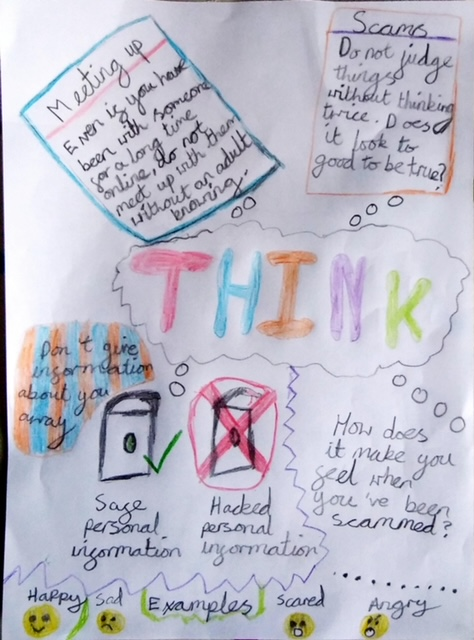 Meeting up
Even if you have
been with someone
for a long time
online, do not
meet up with them
without an adult
knowing.
Scams
Do not judge
things
without thinking
twice. Does
it look to
good to be true?
THINK
Don't give
information
about you
away
Safe
personal
information
Hacked
personal
information
How does
it make you
feel when
you've been
scammed?
Happy Sad Examples Scared Angry